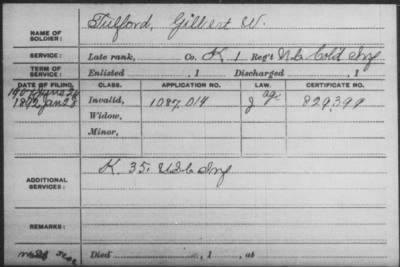 NAME OF SOLDIER: Fulford, Gilbert W.
SERVICE: Late rank, Co. K 1 Reg't N.C. Col'd Inf
TERM OF SERVICE: Enlisted , 1 Discharged , 1
DATE OF FILING. CLASS. APPLICATION NO. LAW. CERTIFICATE NO.
1892 Jan 28 Invalid, 1087,014 829,399
Widow,
Minor,
ADDITIONAL SERVICES: K. 35. U.S.C. Inf
REMARKS:
Died , 1 , at